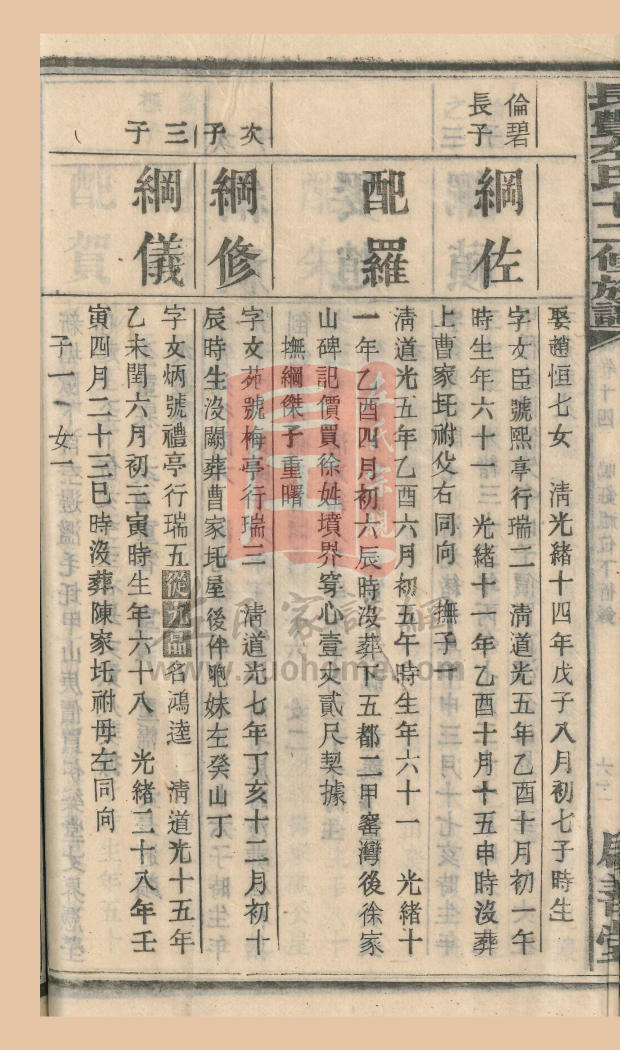 長豐左氏十二修族譜
卷十四
六十一
娶趙恒七女 淸光緒十四年戊子八月初七子時生
倫碧長子
綱佐
字文臣號熙亭行瑞二 淸道光五年乙酉十月初一午
時生年六十一 光緒十一年乙酉十月十五申時沒葬
上曹家坵祔父右同向 撫子一
配羅
淸道光五年乙酉六月初五午時生年六十一 光緒十
一年乙酉四月初六辰時沒葬下五都二甲窰灣後徐家
山碑記價買徐姓墳界穹心壹丈貳尺契據
撫綱傑子重曙
次子
綱修
字文苑號梅亭行瑞三 淸道光七年丁亥十二月初十
辰時生沒闕葬曹家坵屋後伴胞妹左癸山丁
三子
綱儀
字文炳號禮亭行瑞五從九品名鴻逵 淸道光十五年
乙未閏六月初三寅時生年六十八 光緒二十八年壬
寅四月二十三巳時沒葬陳家坵祔母左同向
子一 女一
左氏宗親
左氏家譜網
www.zuohome.com